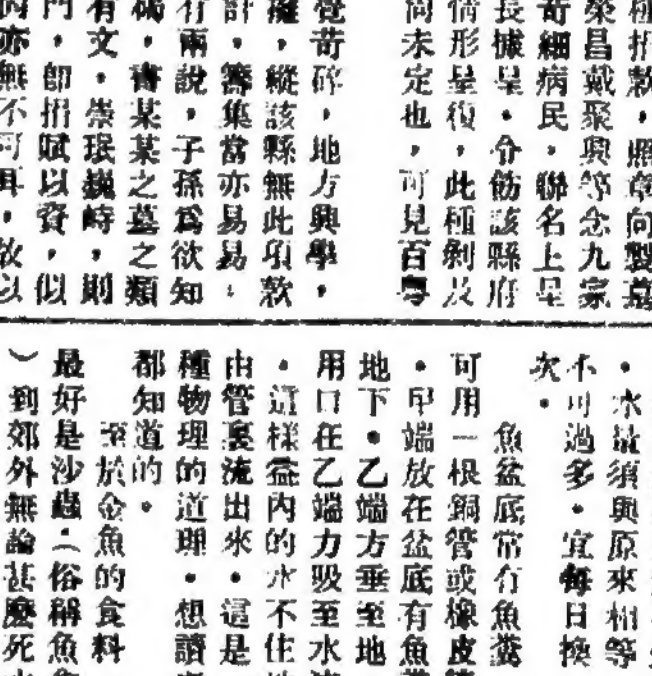 種捐款，照章向製墓
榮昌戴聚興等念九家
苛細病民，聯名上呈
長據呈，令飭該縣府
情形呈復，此種剝及
尚未定也，可見百粵
覺苛碎，地方興學，
縱該縣無此項款
計，籌集當亦易易，
有兩說，子孫為欲知
碣，書某某之墓之類
有文，崇珉巍峙，則
門，即捐賦以資，似
亦無不可耳，故以
，水量須與原來相等
不可過多，宜每日換
次。
魚盆底常有魚糞
可用一根銅管或橡皮
，甲端放在盆底有魚
地下，乙端方垂至地
用口在乙端力吸至水
，這樣盆內的水不住
由管裏流出來，這是
種物理的道理，想讀
都知道的。
至於金魚的食料
最好是沙蟲（俗稱魚
）到郊外無論甚麼死